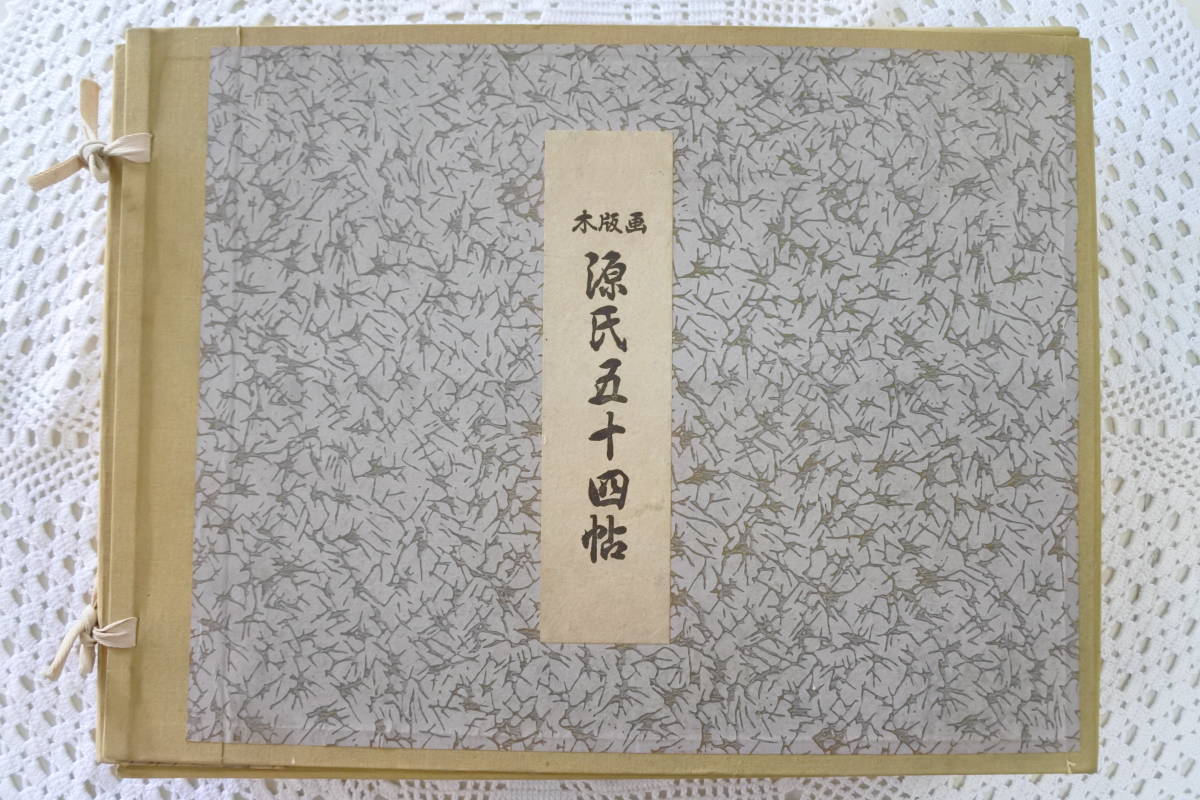 木版画
源氏五十四帖